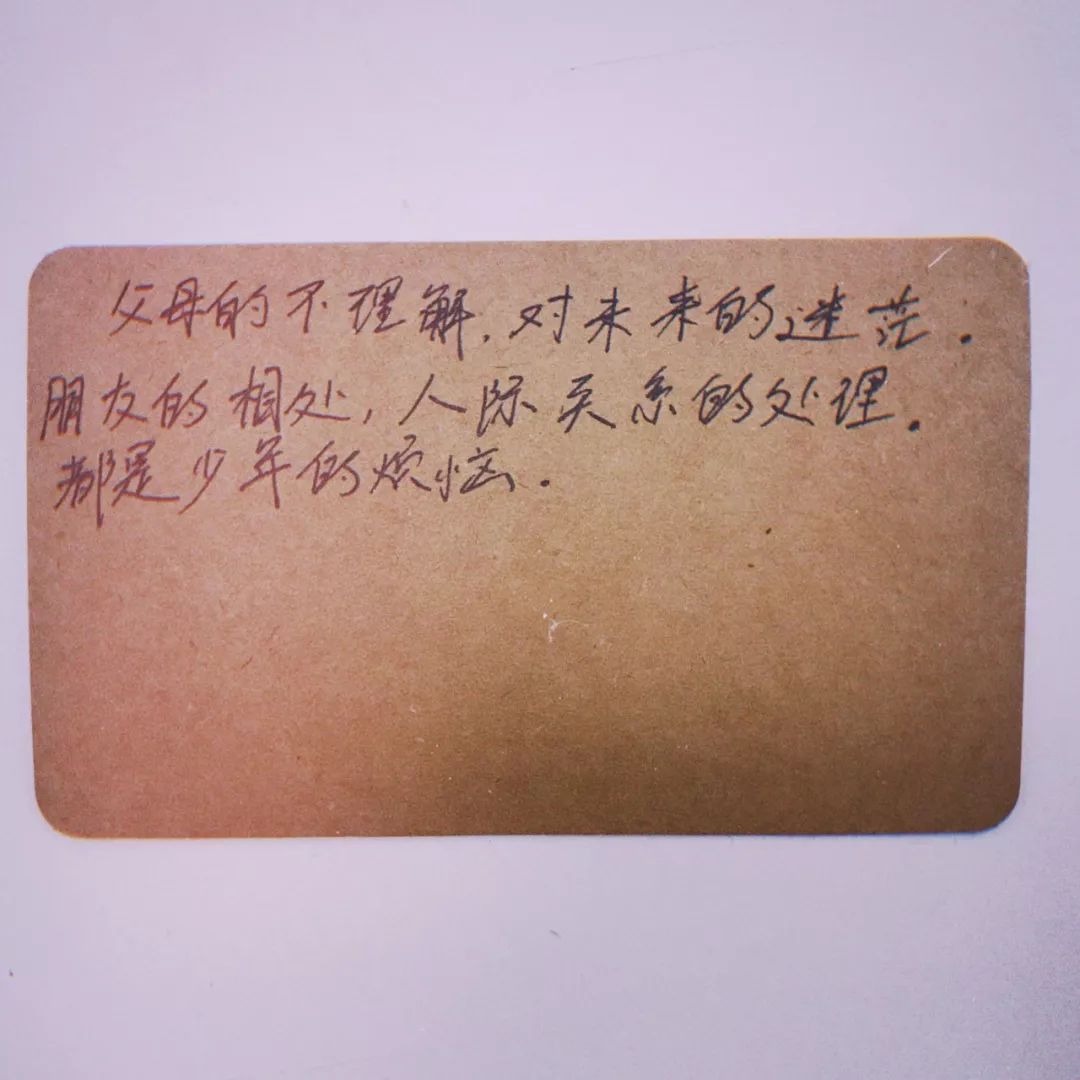 父母的不理解,对未来的迷茫.
朋友的相处,人际关系的处理.
都是少年的烦恼.